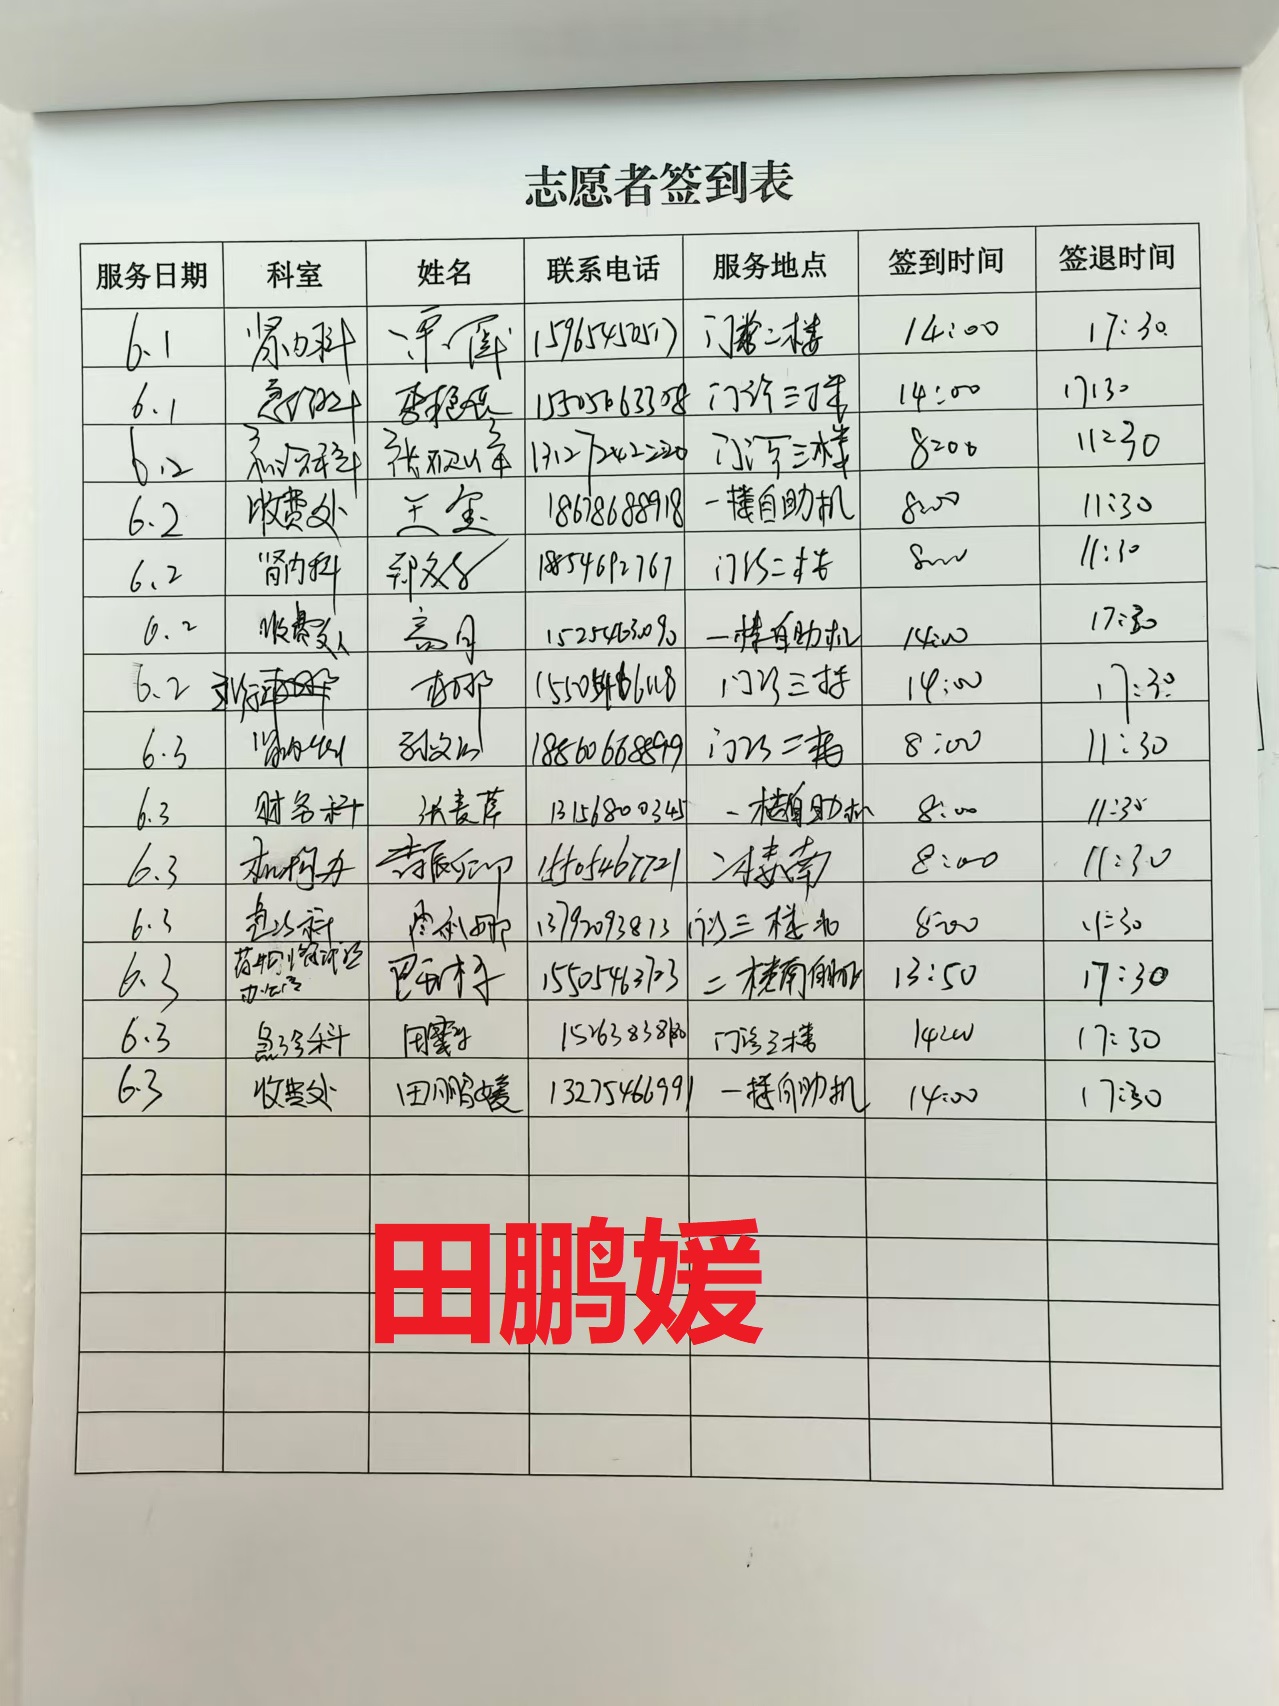 志愿者签到表
服务日期 科室 姓名 联系电话 服务地点 签到时间 签退时间
6.1 肾内科 15965450517 门诊二楼 14:00 17:30
6.1 门诊三楼 14:00 17:30
6.2 13127242220 门诊三楼 8:00 11:30
6.2 收费处 王玺 18678688918 一楼自助机 8:00 11:30
6.2 肾内科 郑文 1854692767 门诊二楼 8:00 11:30
6.2 收费处 高月 一楼自助机 14:00 17:30
6.2 门诊三楼 14:00 17:30
6.3 肾内科 18560668899 门诊二楼 8:00 11:30
6.3 财务科 张麦萍 13156800345 一楼自助机 8:00 11:30
6.3 机构办 15505467721 二楼南 8:00 11:30
6.3 急诊科 13792093813 门诊三楼 8:00 11:30
6.3 药物临床试验
办公室 15505463723 二楼南自助 13:50 17:30
6.3 急诊科 田霞 门诊三楼 14:00 17:30
6.3 收费处 田鹏媛 13275466991 一楼自助机 14:00 17:30
田鹏媛